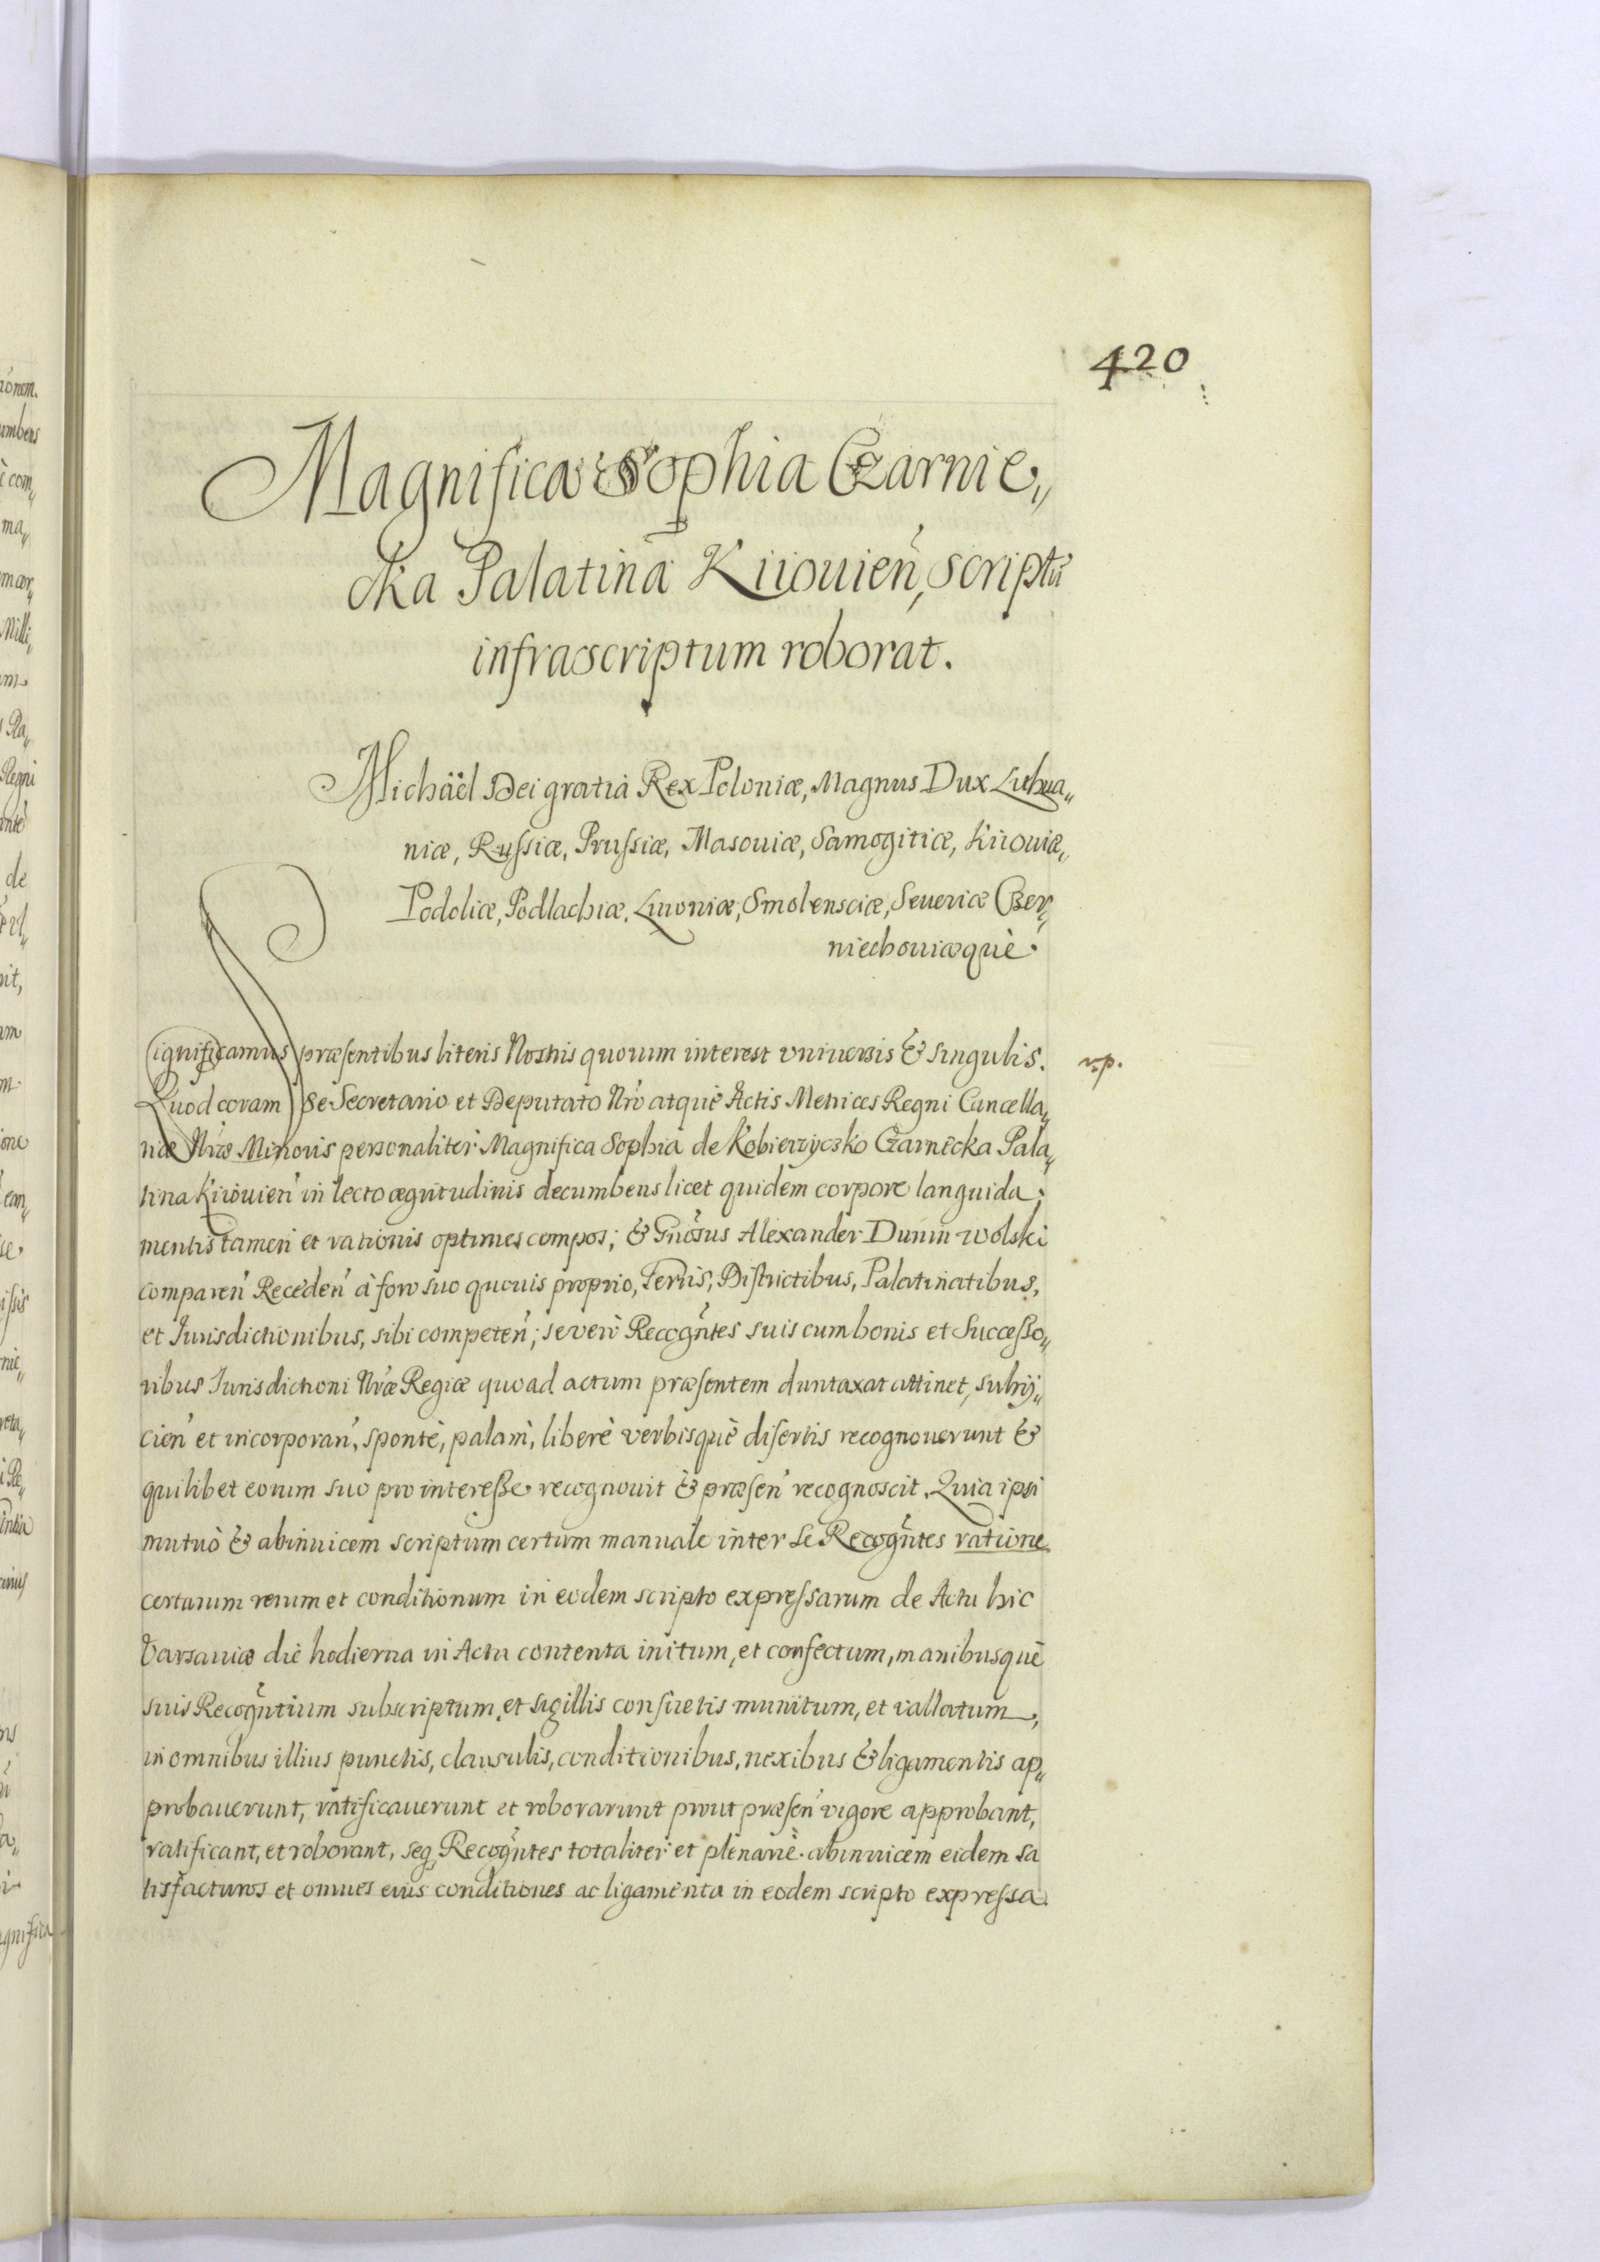 420
Magnifica Sophia Czarnie„
cka Palatina Kiiouien̄, scriptū
infrascriptum roborat.
Michäel Dei gratia Rex Poloniæ, Magnus Dux Lithua„
niæ, Russiæ, Prussiæ, Masouiæ, Samogitiæ, Kiiouiæ,
Podoliæ, Podlachiæ, Liuoniæ, Smolensciæ, Seueriæ Czer„
niechouiæquè.
Significamus præsentibus literis Nostris quorum interest vniuersis & singulis. rp.
Quod coram Se Secretario et Deputato Nr̄o atquè Actis Metrices Regni Cancella„
riæ Nr̄æ Minoris personaliter Magnifica Sophia de Kobierzycsko Czarnecka Pala„
tina Kiiouien̄ in lecto ægritudinis decumbens licet quidem corpore languida;
mentis tamen et rationis optimes compos; & Gnōsus Alexander Dunin wolski
comparen̄ Receden̄ à foro suo quouis proprio, Terris, Districtibus, Palatinatibus,
et Jurisdictionibus, sibi competen̄; severò Recogn̄tes suis cum bonis et Successo„
ribus Jurisdictioni Nr̄æ Regiæ quo ad actum præsentem duntaxat attinet, subij„
cien̄ et incorporan̄, spontè, palam̀, liberè verbisquè disertis recognouerunt &
quilibet eorum suo pro interesse recognouit & præsen̄ recognoscit. Quia ipsi
mutuò & abinuicem scriptum certum manuale inter se Recogn̄tes ratione
certarum rerum et conditionum in eodem scripto expressarum de Actu hic
Varsauiæ die hodierna in Actu contenta initum, et confectum, manibusquè
suis Recogn̄tium subscriptum, et sigillis consuetis munitum, et vallatum,
in omnibus illius punctis, clausulis, conditionibus, nexibus & ligamentis ap„
probauerunt, ratificauerunt et roborarunt prout præsen̄ vigore approbant,
ratificant, et roborant, seq̨ Recogn̄tes totaliter et plenariè abinuicem eidem sa
tisfacturos et omnes eius conditiones ac ligamenta in eodem scripto expressa